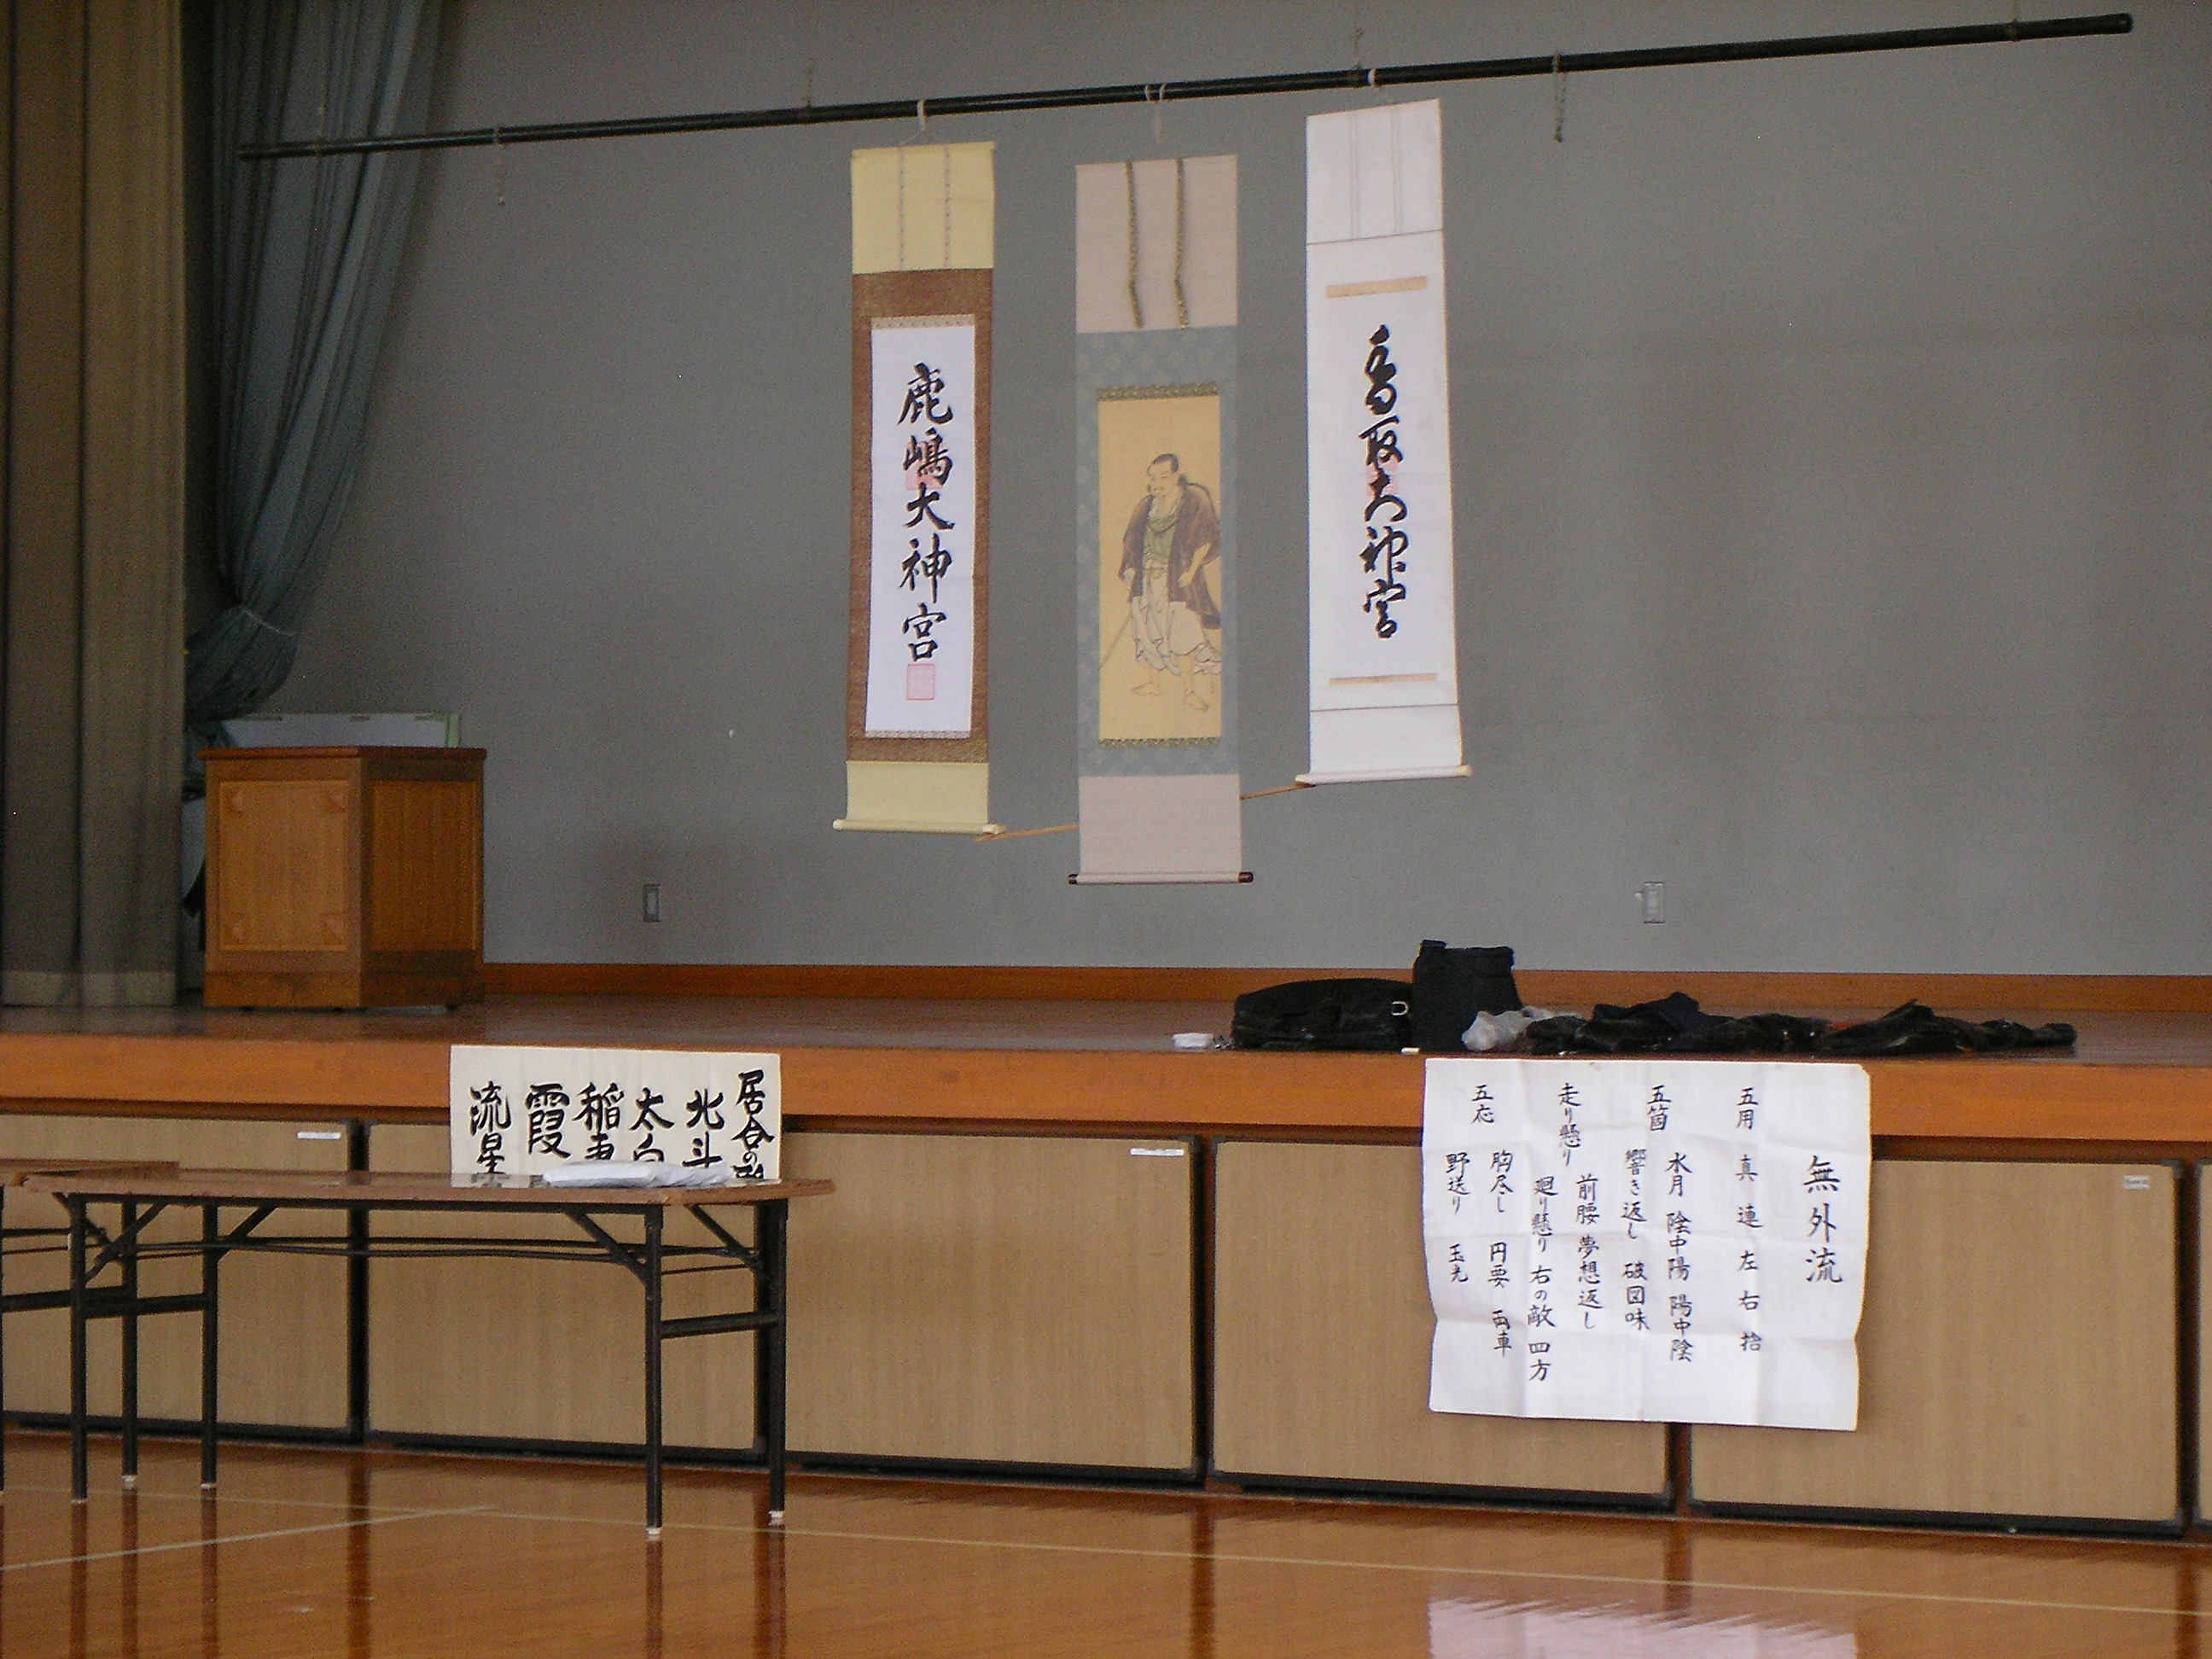 香取大神宮
鹿嶋大神宮
居合の形
北斗
太白
稲妻
霞
流星
無外流
五用 真 連 左 右 捨
五箇 水月 陰中陽 陽中陰
響き返し 破図味
走り懸り 前腰 夢想返し
廻り懸り 右の敵 四方
五応 胸尽し 円要 両車
野送り 玉光